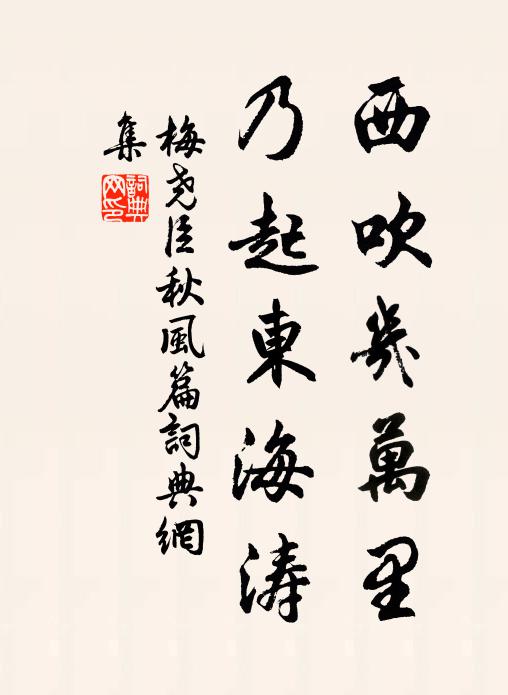 西吹幾萬里
乃起東海濤
梅堯臣秋風篇詞典網
集
詞典網印